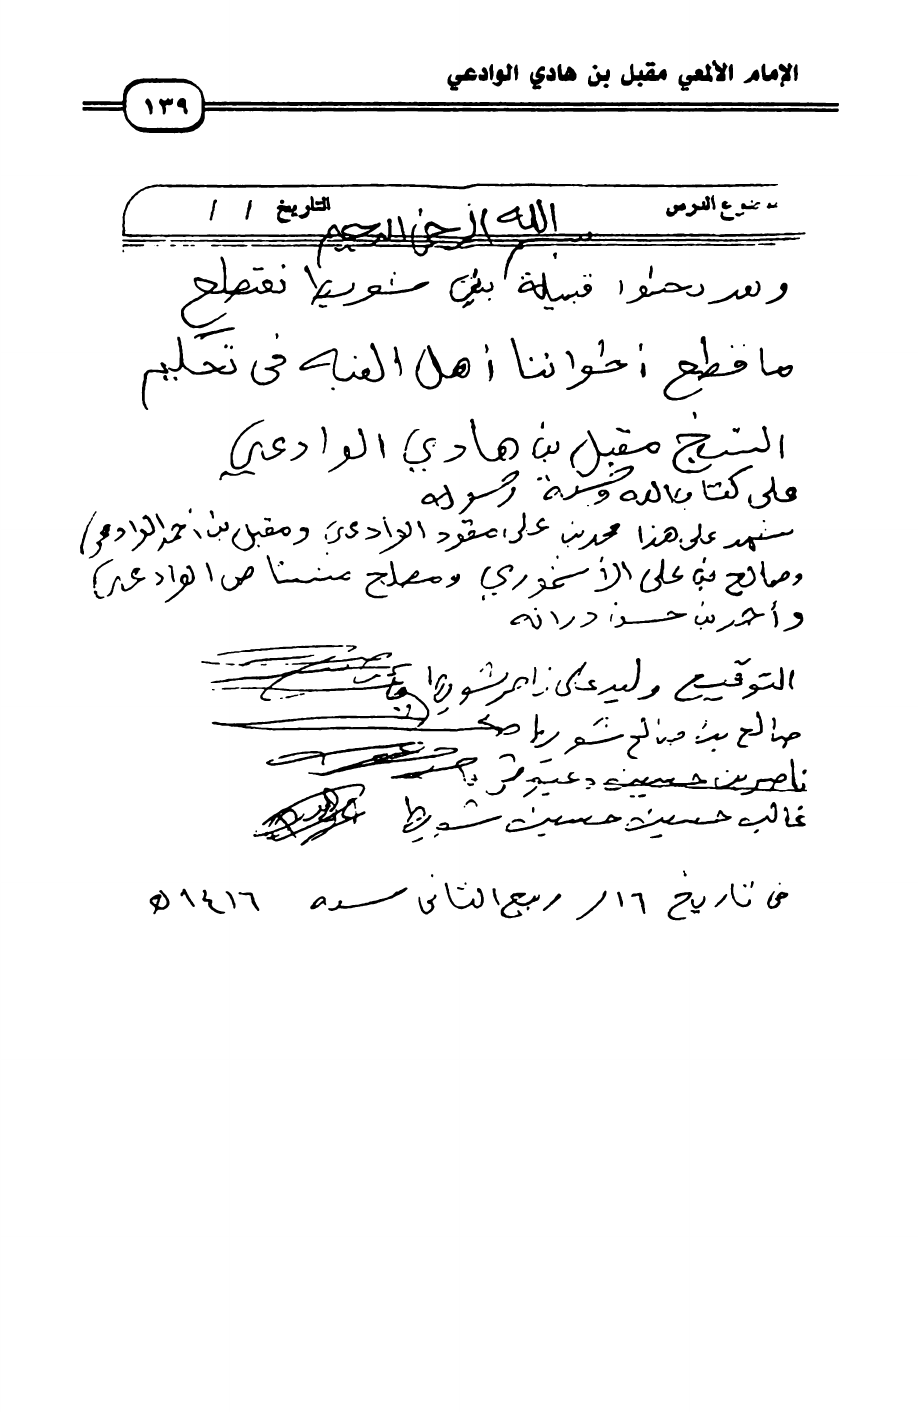 الإمام الألمعي مقبل بن هادي الوادعي
١٣٩
موضوع الدرس التاريخ / /
بسم الله الرحمن الرحيم
وبعد نحن قبيلة بني شويط نقتطع
ما قطع أخواننا أهل في تحكيم
الشيخ مقبل بن هادي الوادعي
على كتاب الله وسنة رسوله
شهد على هذا محمد بن علي مقود الوادعي ومقبل بن أحمد الوادعي
وصالح بن علي ومصلح الوادعي
وأحمد بن حسن درانه
التوقيع وليد علي زاهر شويط
صالح بن صالح شويط
ناصر بن حسين
غالب حسين حسين شويط
في تاريخ ١٦ ربيع الثاني سنه ١٤١٦ ه